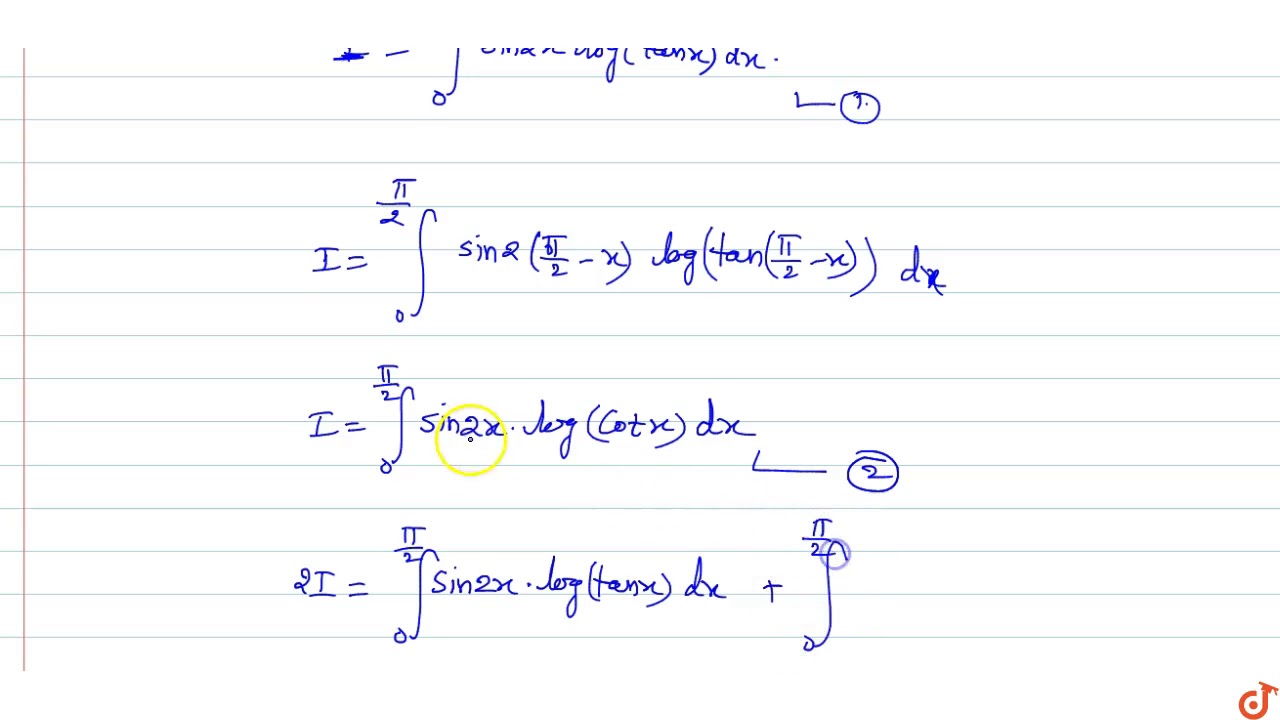 I = ∫₀ sin2x log(tanx) dx.
①
I = ∫₀^(π/2) sin2(π/2 − x) log(tan(π/2 − x)) dx
I = ∫₀^(π/2) sin2x · log(cotx) dx
②
2I = ∫₀^(π/2) sin2x · log(tanx) dx + ∫₀^(π/2)